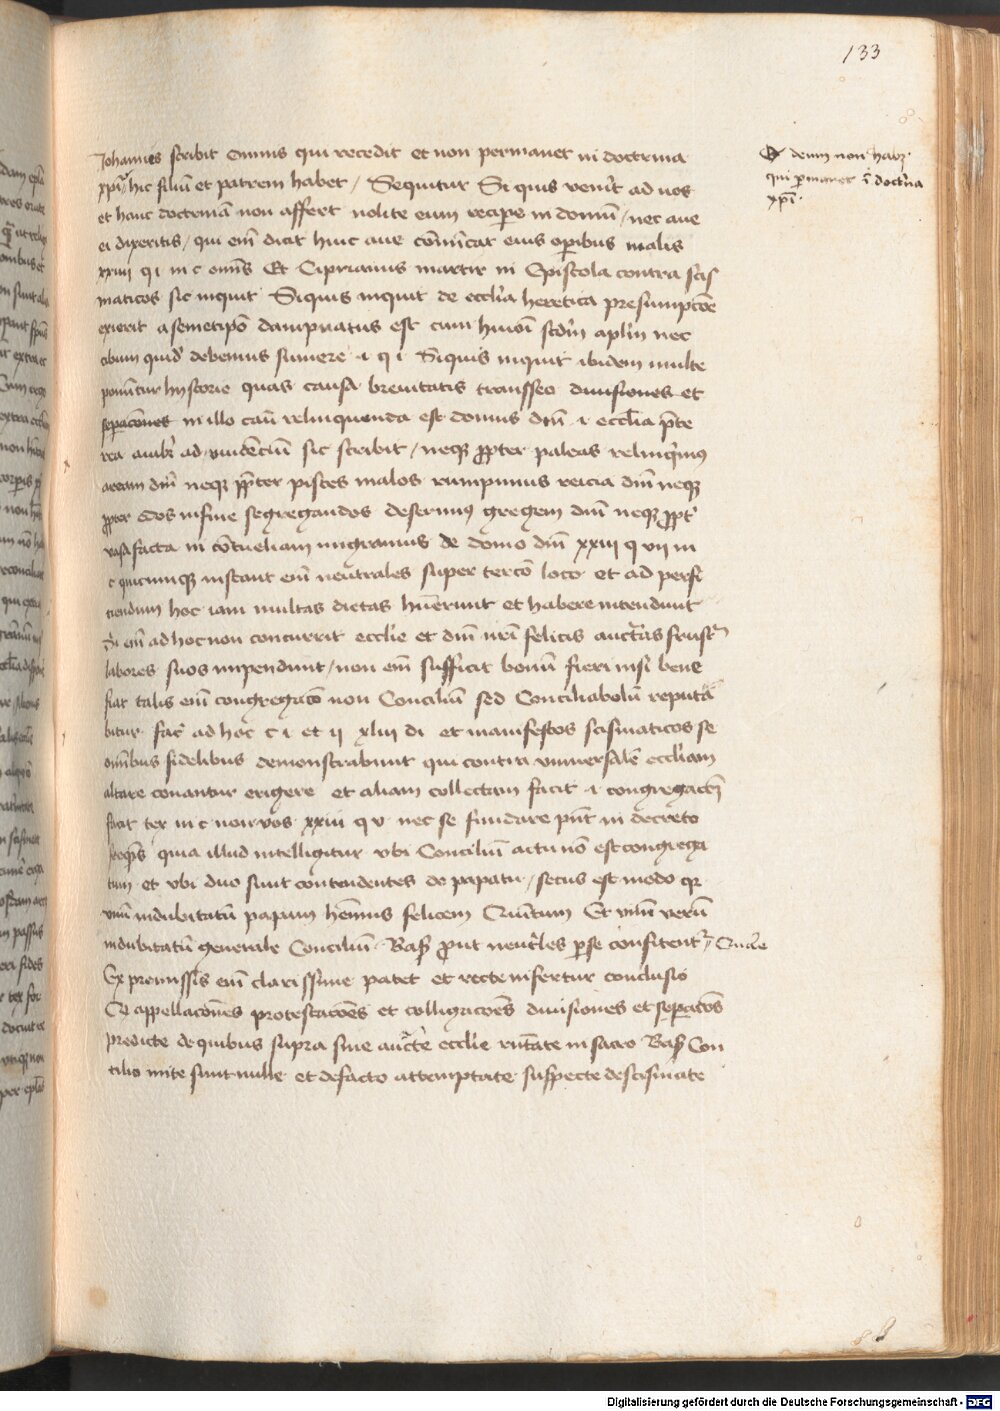 133
Johannes scribit Omnis qui recedit et non permanet in doctrina
xpi / hic filiu et patrem habet / Sequitur Si quis venit ad vos
et hanc doctrina non affert nolite eum recipe in domu / nec aue
ei dixeritis / qui em dicit huic aue comicat eius opibus malis
xxiiii q i in c omis Et Ciprianus martir in Epistola contra scis
maticos sic inquit Si quis inquit de ecclia heretica presumpcoe
exierit a semetipo dampnatus est cum hmoi scdm aplm nec
cibum quid debemus sumere i q i Si quis inquit ibidem multe
ponutur hystorie quas causa breuitatis transseo diuisiones et
sepacoes in illo cau relinquenda est domus dni i ecclia pte
rea ad vincenciu sic scribit / neq ppter paleas relinqimus
aream dni neq ppter pisces malos rumpimus recia dni neq
ppter edos in fine segregandos deserimus gregem dni neq ppt
vasa facta in cotueliam migramus de domo dni xxiii q vii in
c quicumq instant em neutrales super tercio loco et ad perfi
ciendum hoc iam multas dietas huerunt et habere intendunt
Si em ad hoc non concurrit ecclie et dni nri felicis auctas frustra
labores suos impendunt / non em sufficit bonu fieri nisi bene
fiat talis em congregaco non Conciliu sed Conciliabolu reputa
bitur fac ad hoc c i et ii xliii di et manifestos scismaticos se
omibus fidelibus demonstrabunt qui contra vniuersale eccliam
altare conantur erigere et aliam collectam facit i congregacoem
facit tex in c non vos xxiii q v nec se fundare pnt in decreto
quia illud intelligitur vbi Conciliu actu no est congrega
tum et vbi duo sunt contendentes de papatu / secus est modo qr
vnu indubitatu papam hemus felicem Quintum Et vnu veru
indubitatu generale Conciliu Basi prout neutrles pse confitent
Ex premissis em clarissime patet et recte infertur conclusio
Qd appellacoes protestacoes et colligacoes diuisiones et sepacoes
predicte de quibus supra siue aucte ecclie vnitate in sacro Basi Con
cilio inite sunt nulle et de facto attemptate suspecte de scismate
deum non habz
qui pmanet i doctrina
xpi